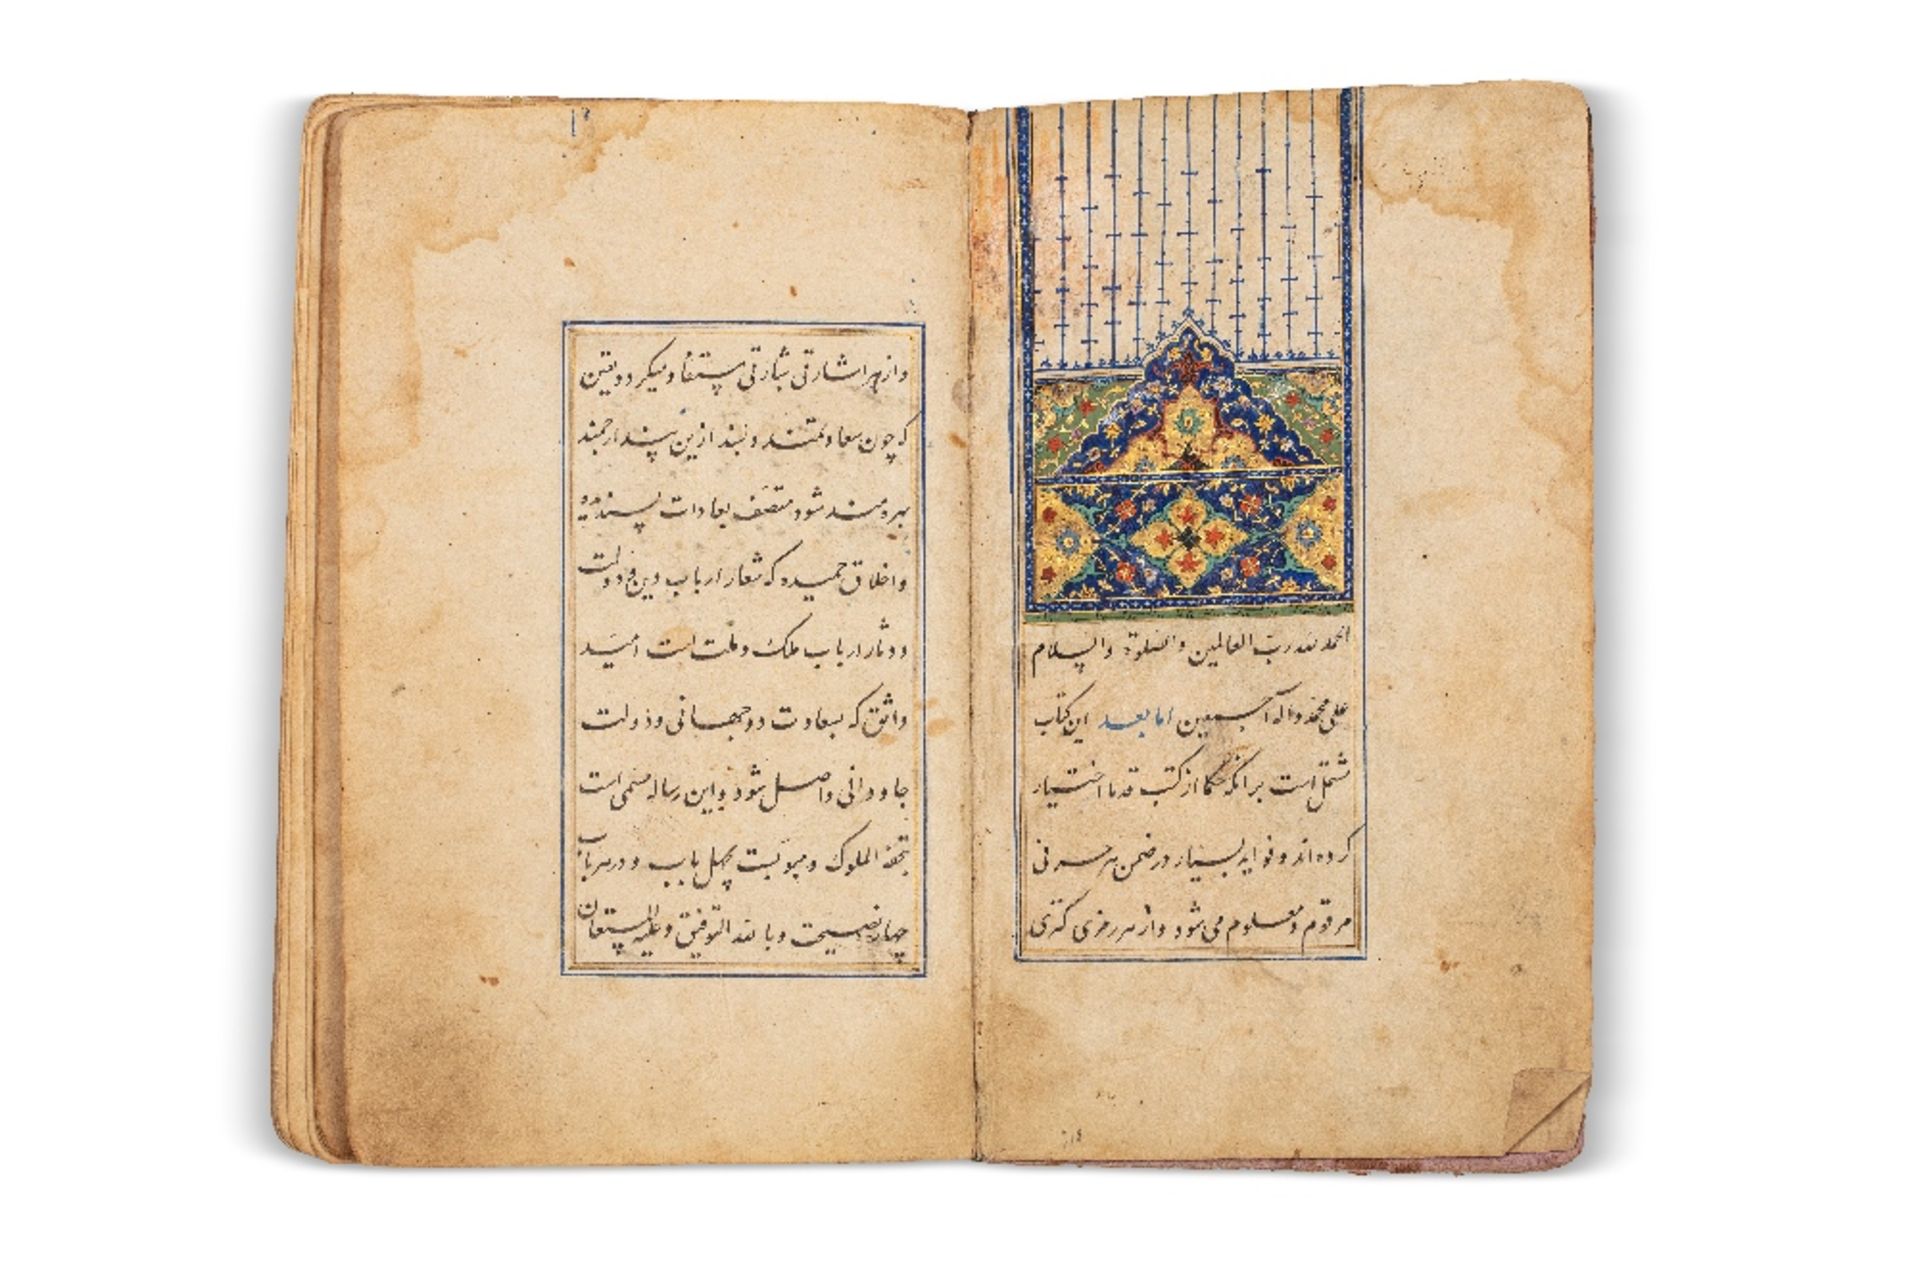 الحمد لله رب العالمین والصلوة والسلام
علی محمد واله اجمعین اما بعد این کتاب
مشتمل است بر انکه حکما از کتب قدما اختیار
کرده اند و فواید بسیار در ضمن هر حرفی
مرقوم و معلوم می شود و از هر رمزی کنزی
و از هر اشارتی بشارتی مستفاد میکردد و یقین
که چون سعادتمند و بند ازین پند ارجمند
بهره مند شود متصف بعادات پسندیده
و اخلاق حمیده که شعار ارباب دین و دولت
و دثار ارباب ملک و ملت است امید
واثق که بسعادت دو جهانی و دولت
جاودانی واصل شود و این رساله مسمی است
بتحفة الملوک و مبوبست بچهل باب و در هر باب
چهار نصیحت و بالله التوفیق و علیه المستعان